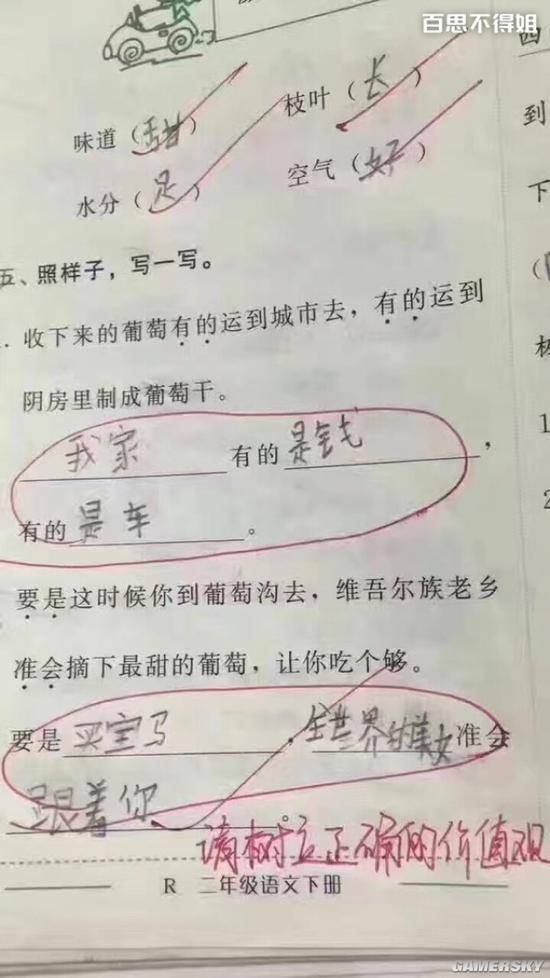 百思不得姐
味道（甜） 枝叶（长）
水分（足） 空气（好）
五、照样子，写一写。
. 收下来的葡萄有的运到城市去，有的运到
阴房里制成葡萄干。
我家有的是钱，
有的是车。
要是这时候你到葡萄沟去，维吾尔族老乡
准会摘下最甜的葡萄，让你吃个够。
要是买宝马，全世界的美女准会
跟着你。
请树立正确的价值观
R 二年级语文下册
四
到
下
1
2
GAMERSKY